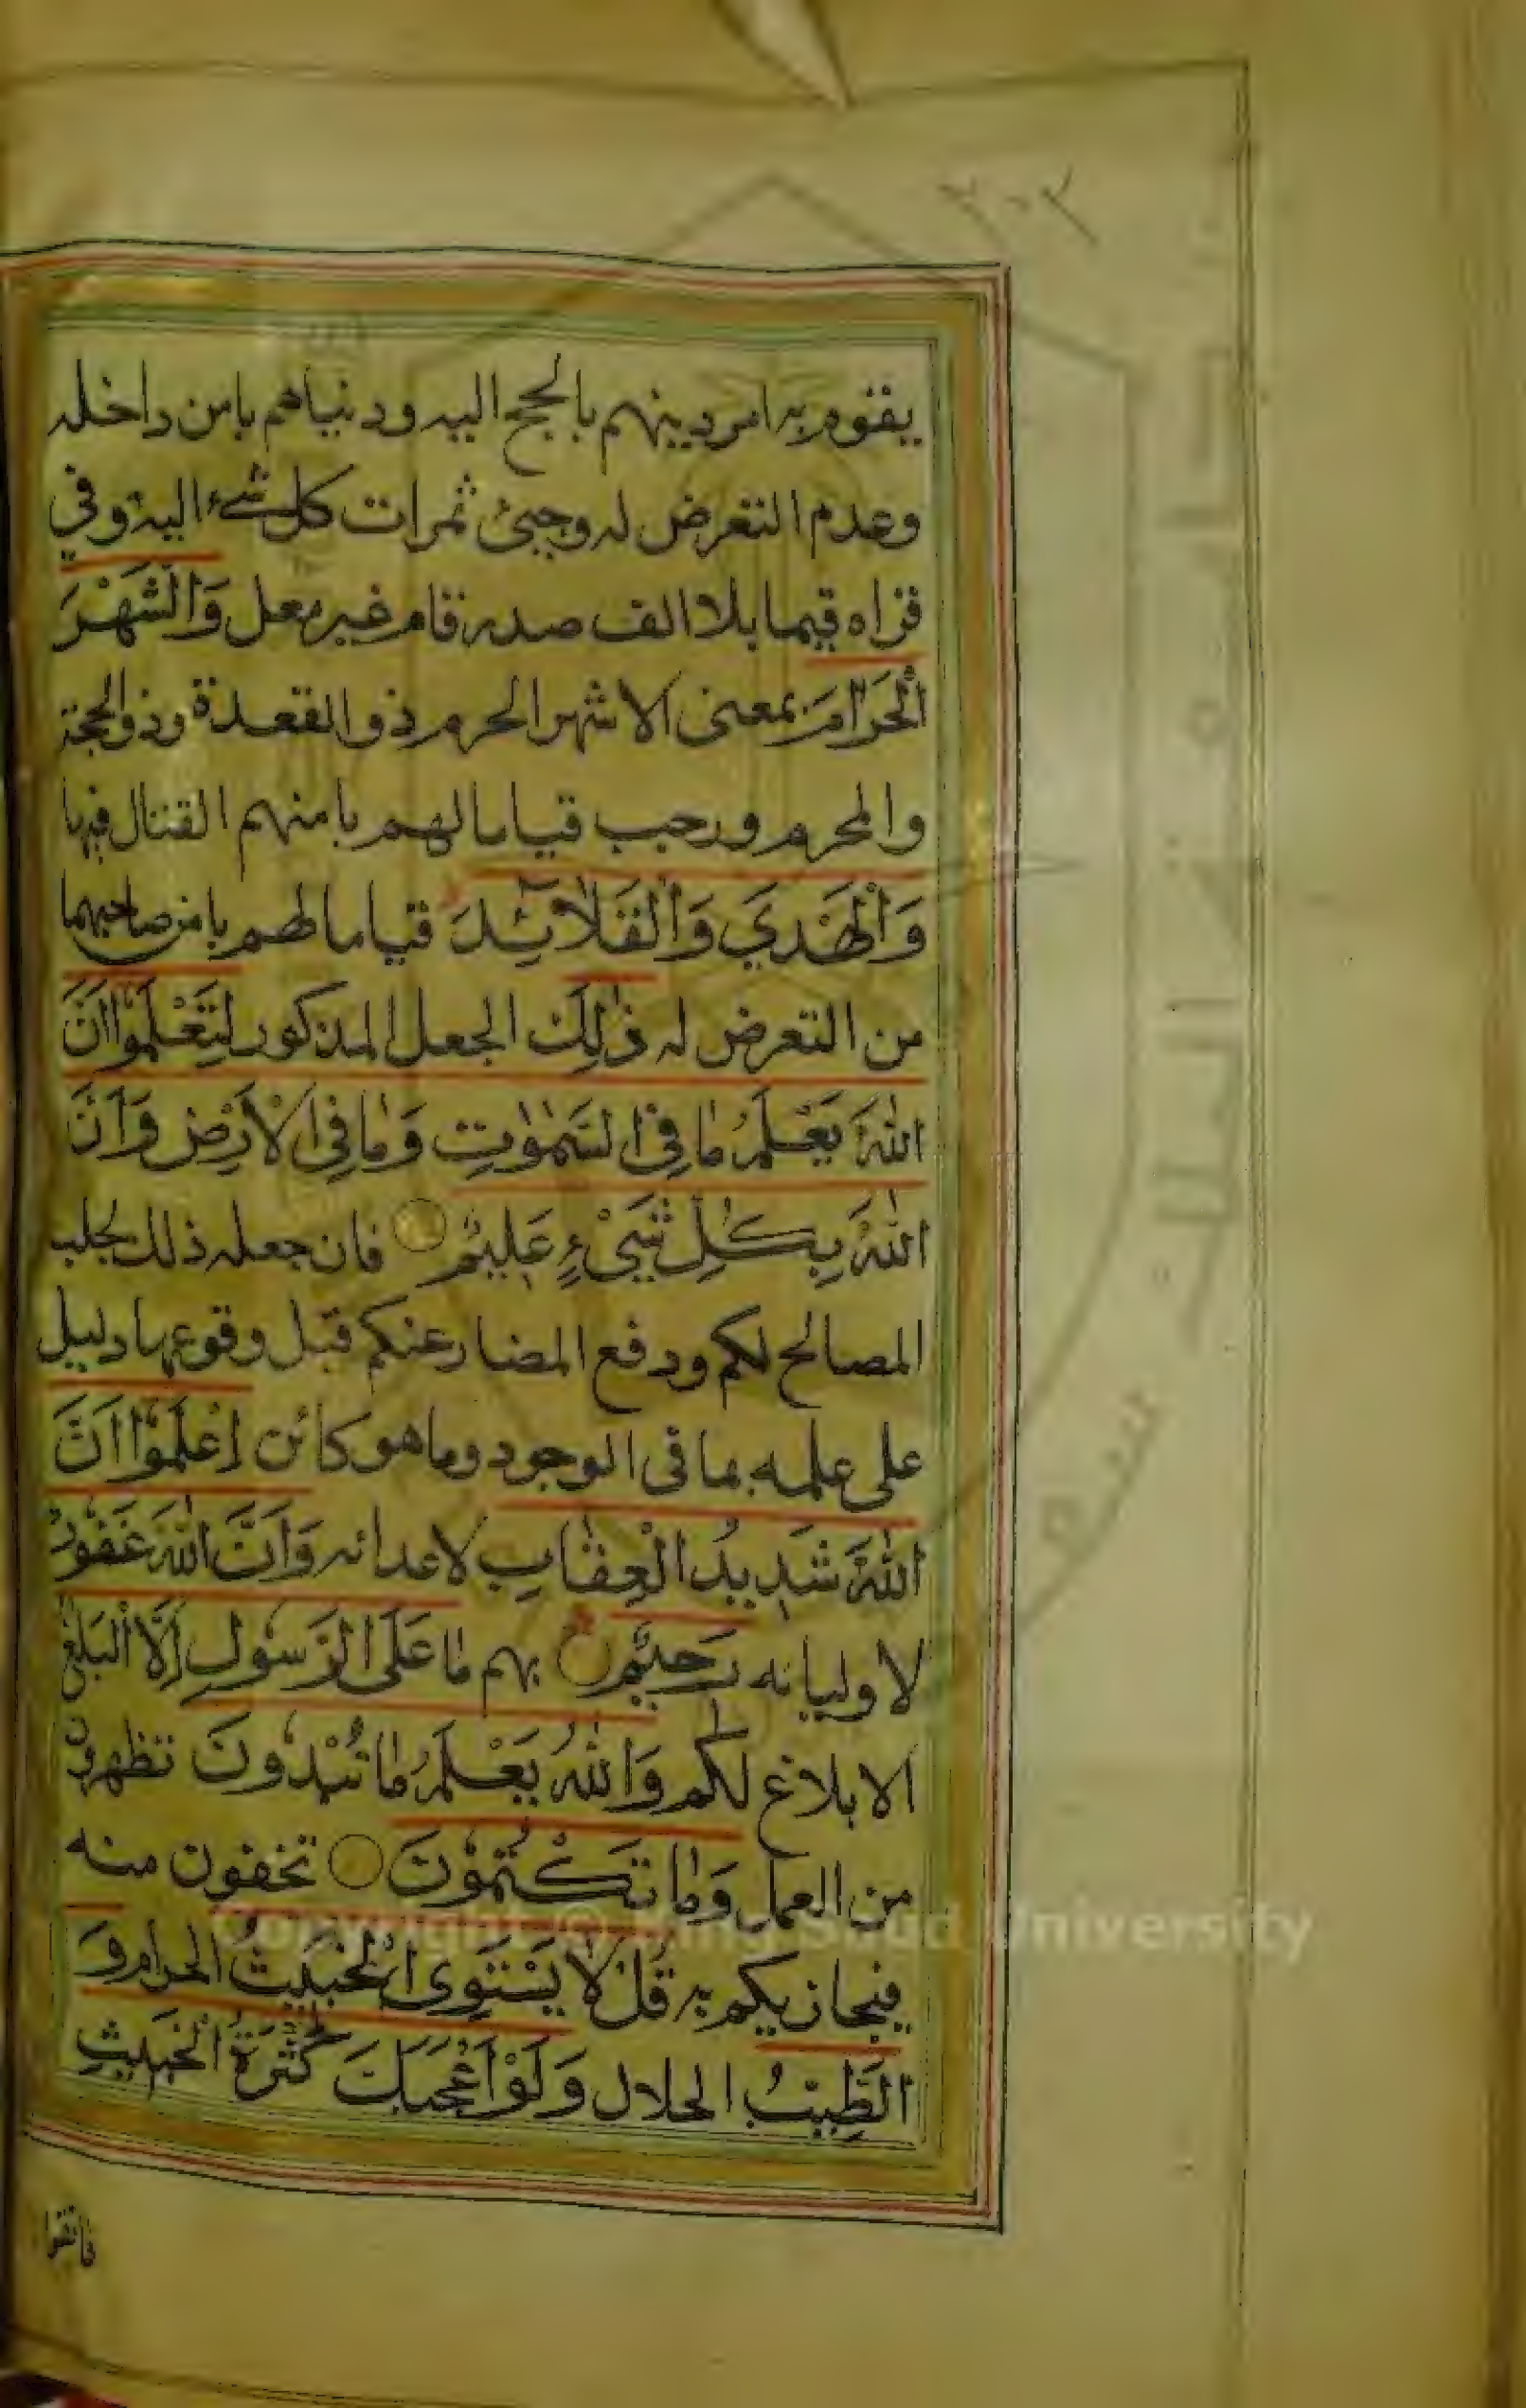 ٢٠٢
يقوم به امر دينهم بالحج اليه ودنياهم بامن داخله
وعدم التعرض له وجبئ ثمرات كل شيء اليه وفي
قراه قيما بلا الف صدر قام غير معل وَالشَّهْرَ
الْحَرَامَ بمعنى الاشهر الحرم ذو القعدة وذو الحجة
والمحرم ورجب قياما لهم بامنهم القتال فيها
وَالْهَدْيَ وَالْقَلَآئِدَ قياما لهم بامن صاحبهما
من التعرض له ذٰلِكَ الجعل المذكور لِتَعْلَمُوٓا اَنَّ
اللّٰهَ يَعْلَمُ مَا فِي السَّمٰوٰتِ وَمَا فِي الْاَرْضِ وَاَنَّ
اللّٰهَ بِكُلِّ شَيْءٍ عَلِيْمٌ فان جعله ذلك لجلب
المصالح لكم ودفع المضار عنكم قبل وقوعها دليل
على علمه بما في الوجود وما هو كائن اِعْلَمُوٓا اَنَّ
اللّٰهَ شَدِيْدُ الْعِقَابِ لاعدائه وَاَنَّ اللّٰهَ غَفُوْرٌ
لاوليائه رَحِيْمٌ بهم مَا عَلَى الرَّسُوْلِ اِلَّا الْبَلٰغُ
الابلاغ لكم وَاللّٰهُ يَعْلَمُ مَا تُبْدُوْنَ تظهرون
من العمل وَمَا تَكْتُمُوْنَ تخفون منه
فيجازيكم به قُلْ لَا يَسْتَوِى الْخَبِيْثُ الحرام وَ
الطَّيِّبُ الحلال وَلَوْ اَعْجَبَكَ كَثْرَةُ الْخَبِيْثِ
فاتقوا
Copyright © King Saud University